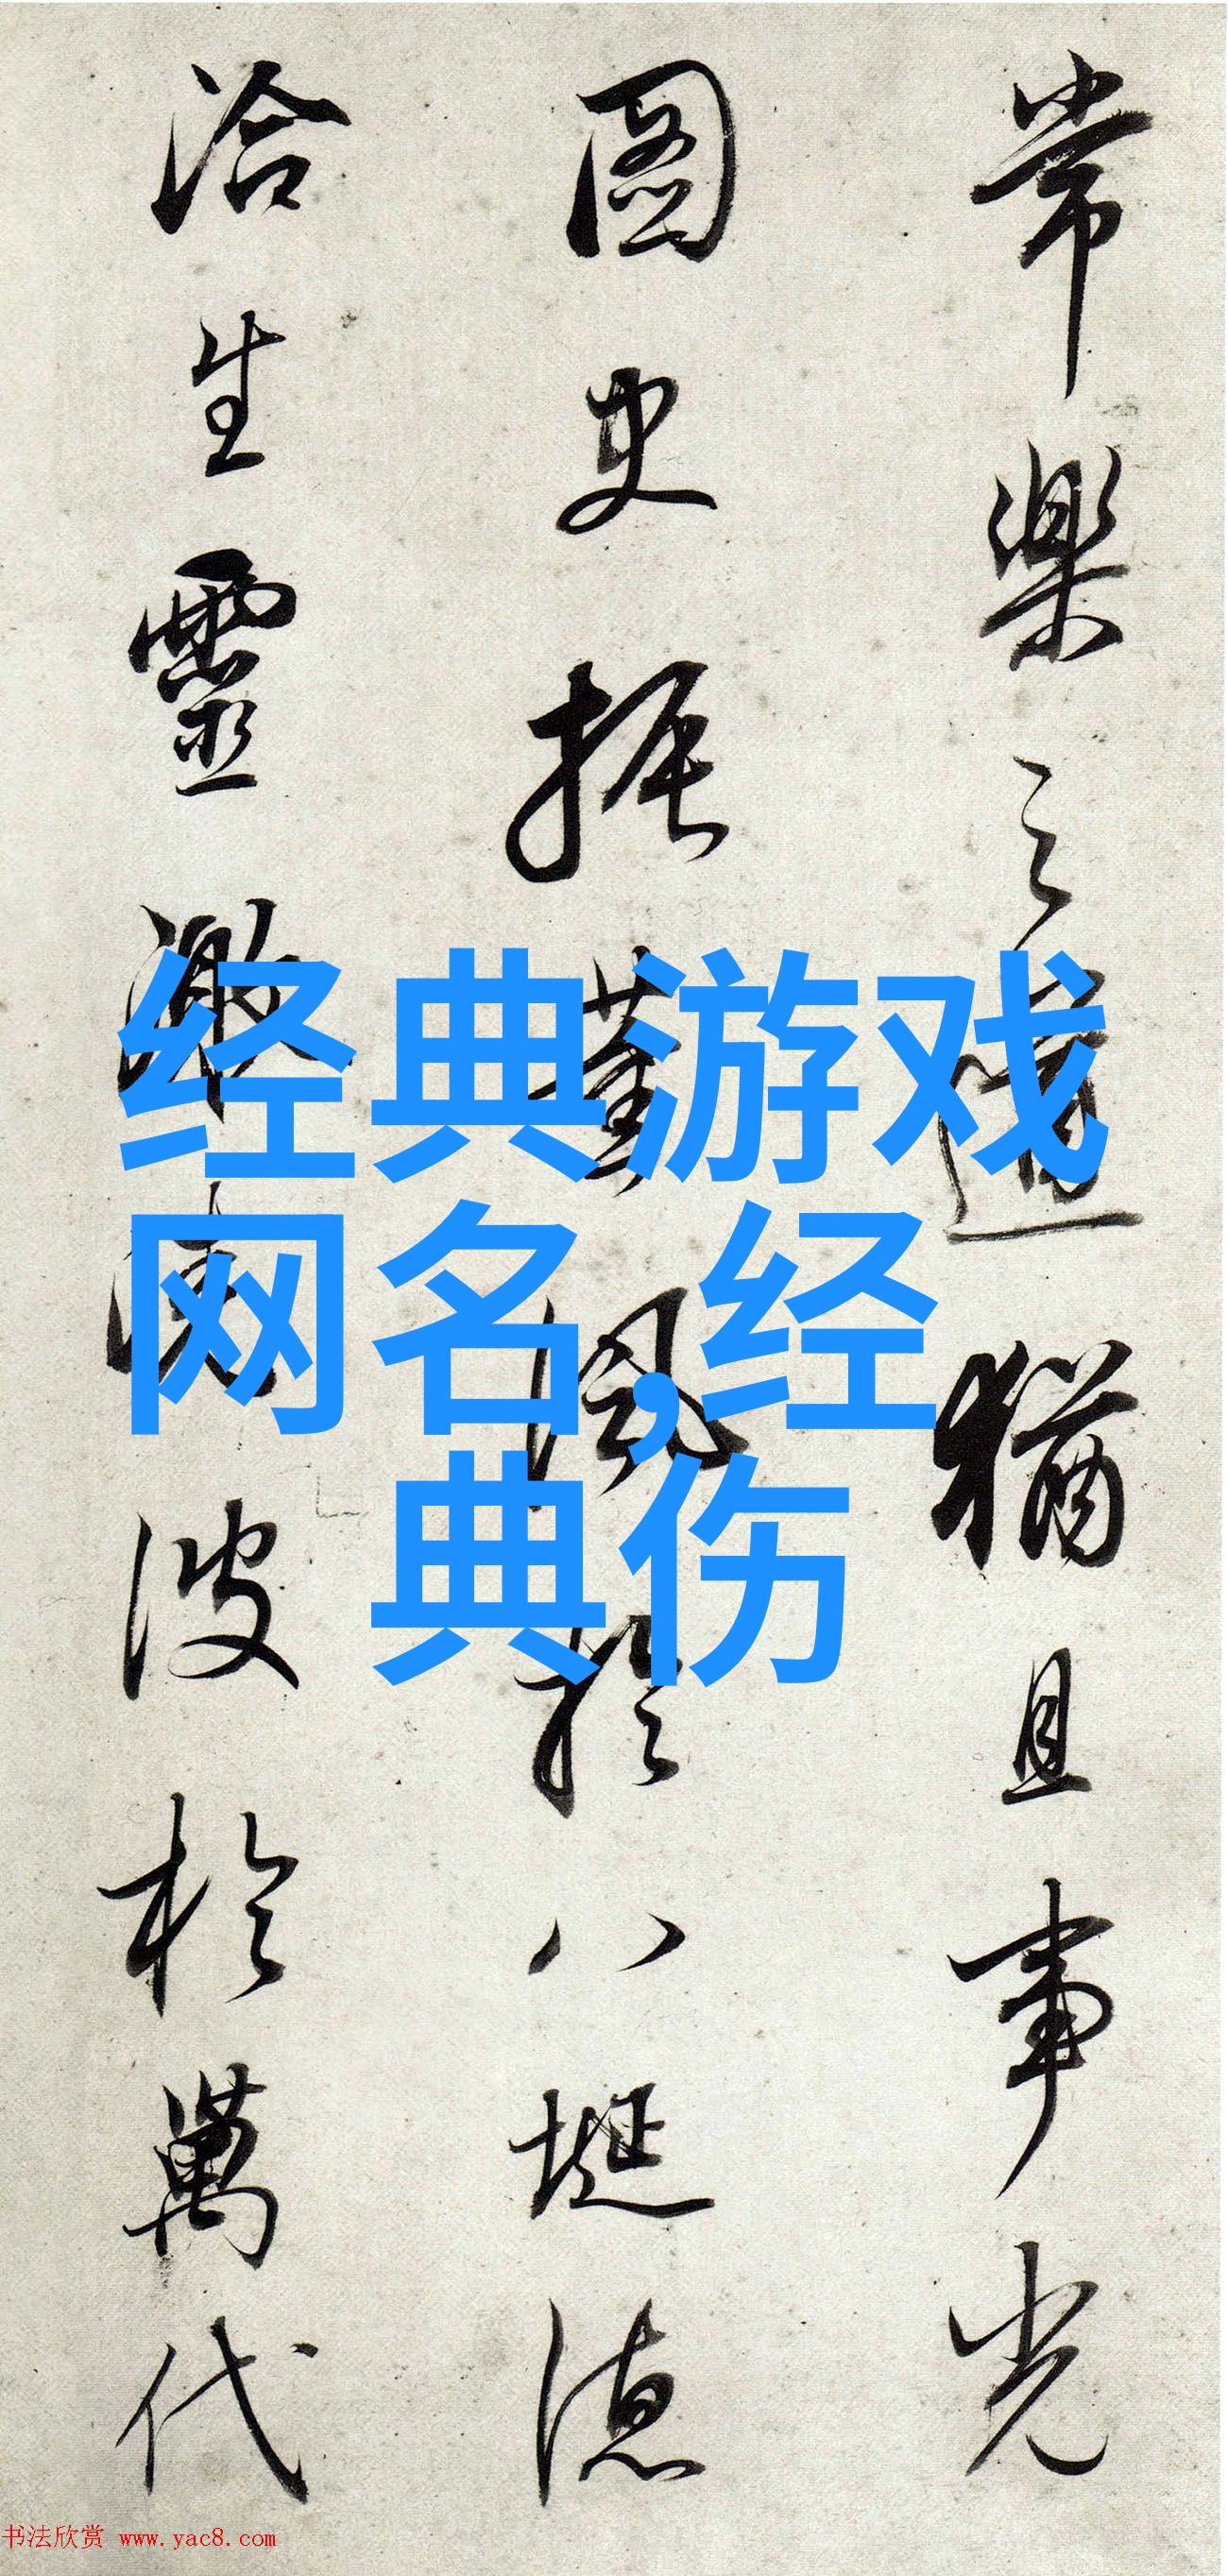 常樂之道猶且事光
圖史振薰風於八埏德
洽生靈激波於萬代
经典游戏
网名,经
典伤
书法欣赏 www.yac8.com